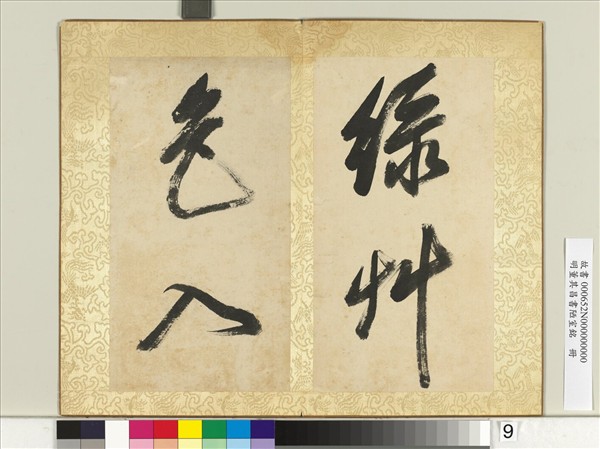 綠艸
色入
故書 000652N000000000
明董其昌書陋室銘 冊
9